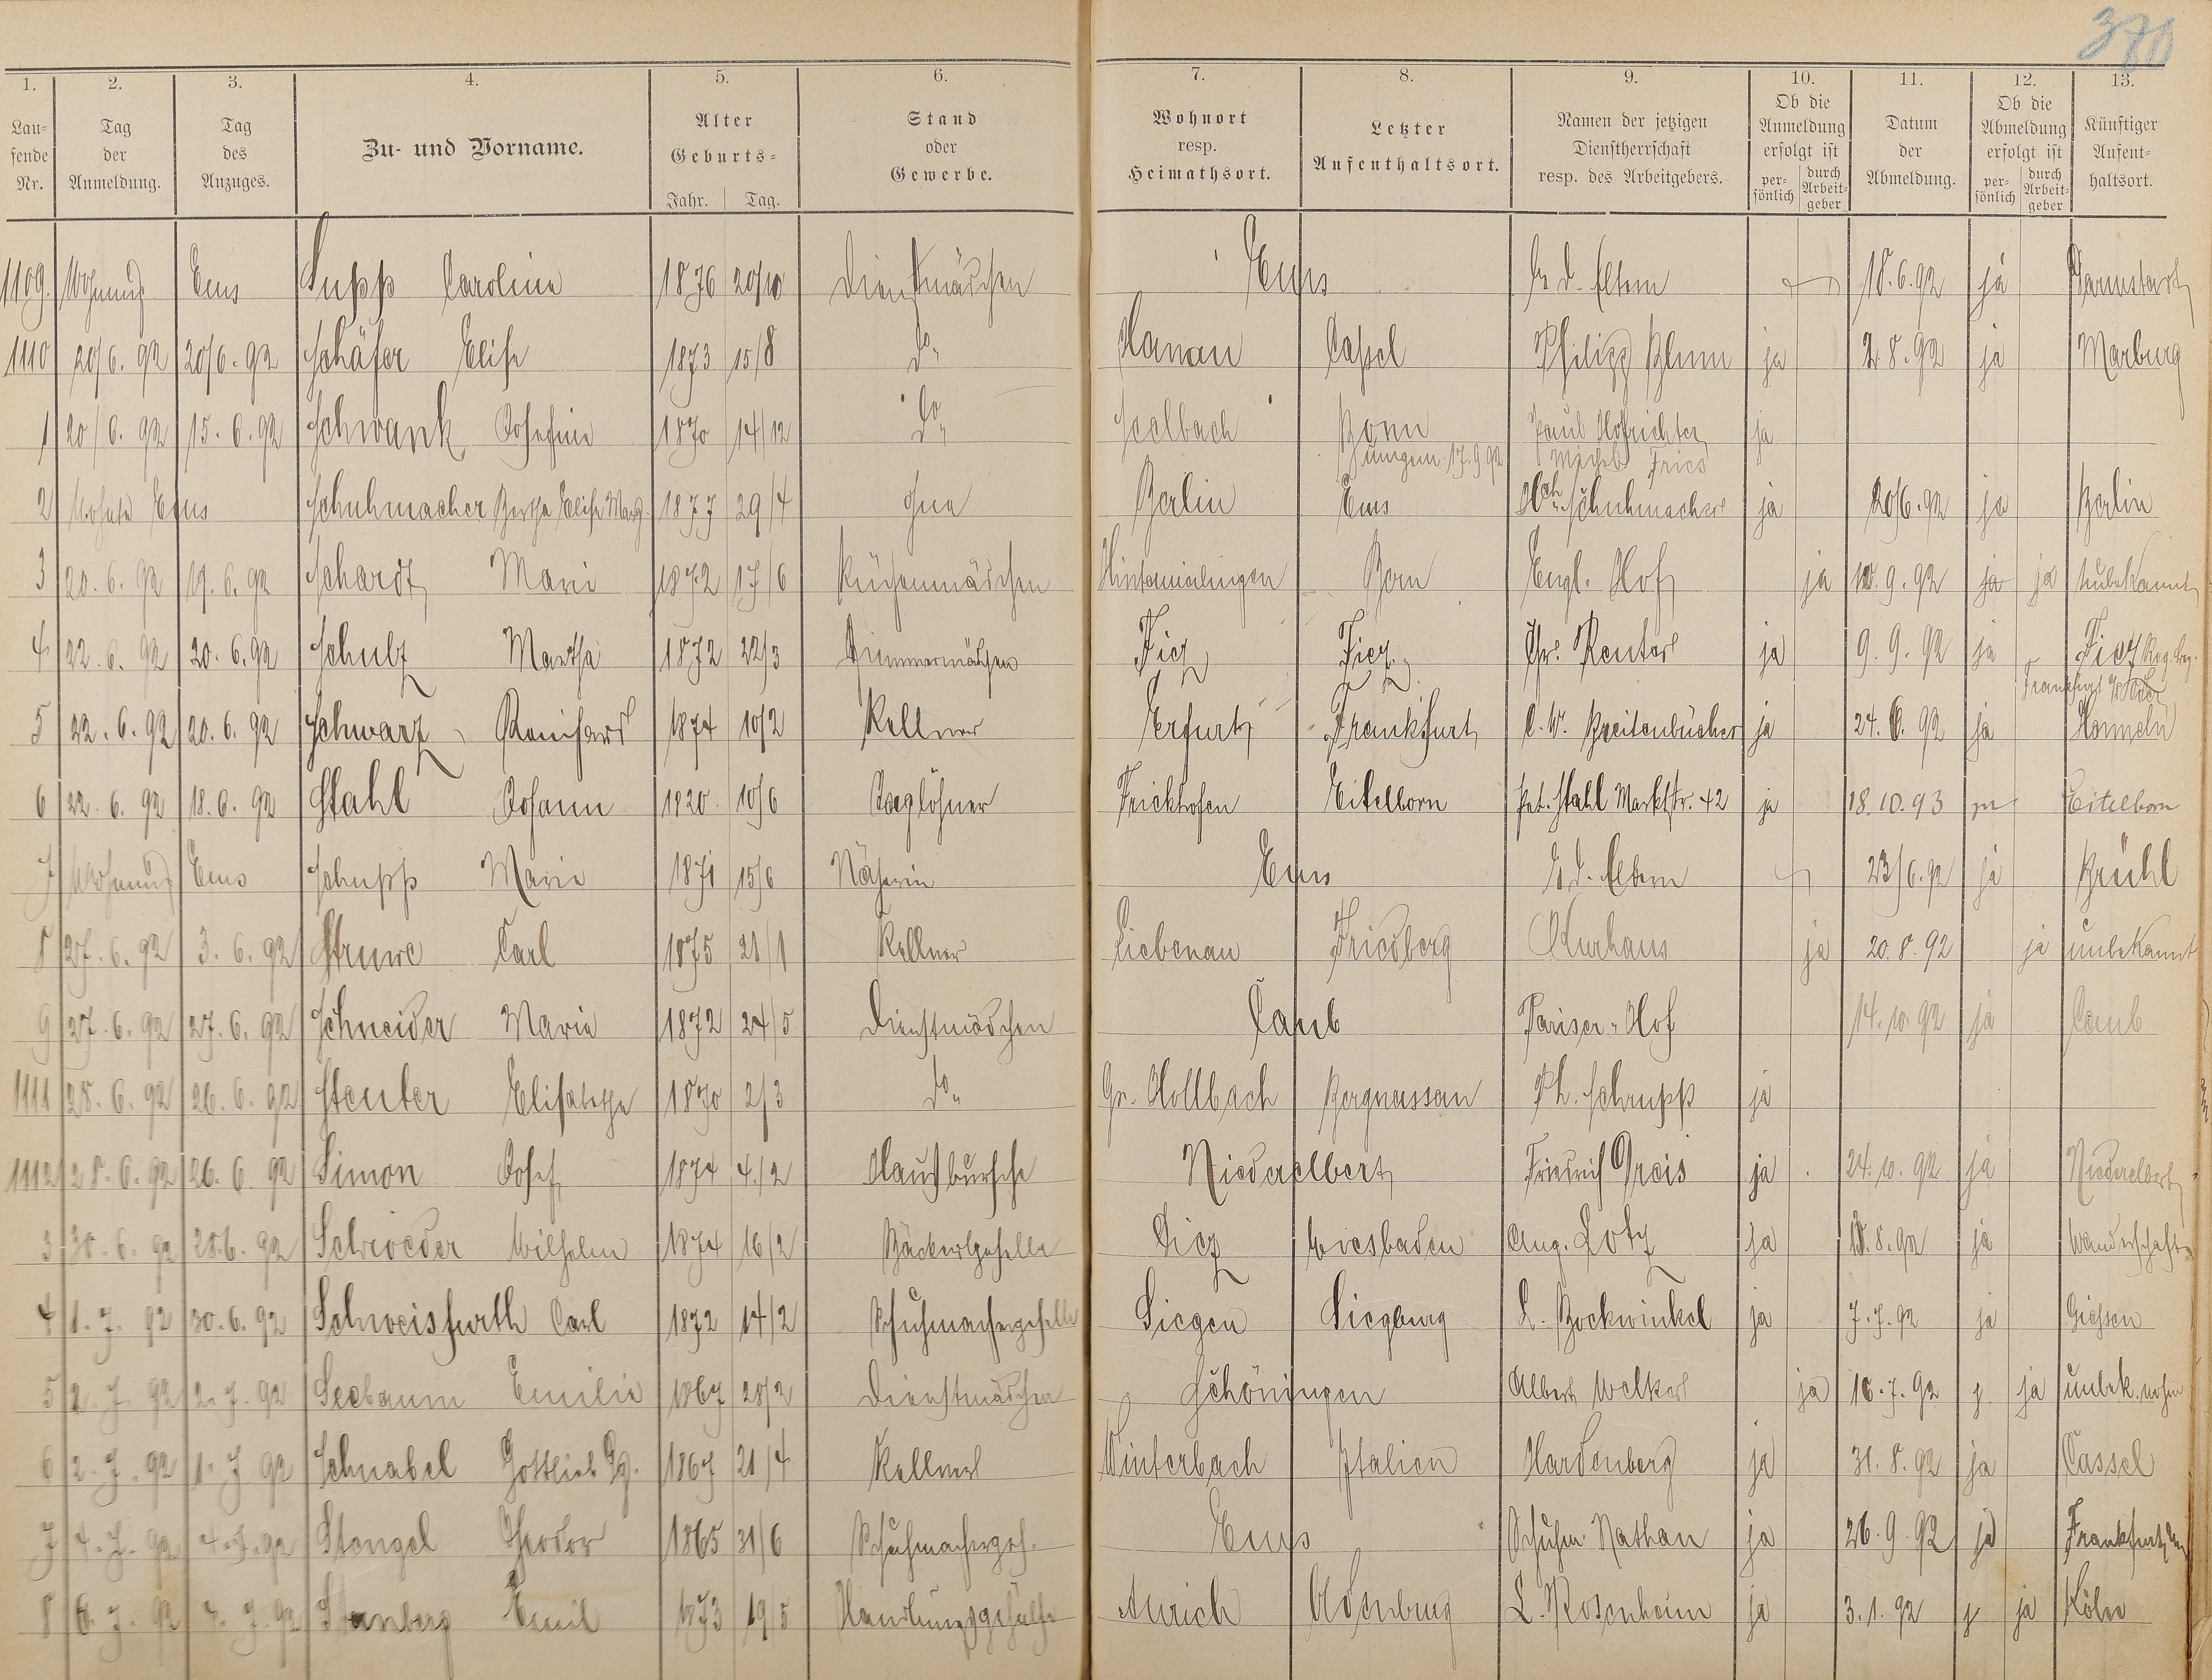 370
1. 2. 3. 4. 5. 6. 7. 8. 9. 10. 11. 12. 13.
Laufende Nr. | Tag der Anmeldung. | Tag des Anzuges. | Zu- und Vorname. | Alter Geburts- Jahr. Tag. | Stand oder Gewerbe. | Wohnort resp. Heimathsort. | Letzter Aufenthaltsort. | Namen der jetzigen Dienstherrschaft resp. des Arbeitgebers. | Ob die Anmeldung erfolgt ist persönlich durch Arbeitgeber | Datum der Abmeldung. | Ob die Abmeldung erfolgt ist persönlich durch Arbeitgeber | Künftiger Aufenthaltsort.
1109. Ems Supp Caroline 1876 20/10 Dienstmädchen Ems b. d. Eltern 18.6.92 ja
1110 20/6. 92 20/6. 92 Schäfer Elise 1873 15/8 do. Hanau Cassel Philipp Blum ja 2.8.92 ja Marburg
1 20/6. 92 15. 6. 92 Schwank Josefine 1870 14/12 do. Seelbach Bonn Paul Hofrichter ja
17.9.92 Fries
2 Ems Schuhmacher Bertha Elise Marg. 1877 29/4 ohne Berlin Ems Schuhmacher ja 20/6.92 ja Berlin
3 20. 6. 92 19. 6. 92 Schardt Marie 1872 17/6 Küchenmädchen Bonn Engl. Hof ja 10.9.92 ja ja unbekannt
4 22. 6. 92 20. 6. 92 Schulz Martha 1872 22/3 Zimmermädchen Chr. Reuter ja 9. 9. 92 ja
Frankfurt a/Oder
5 22. 6. 92 20. 6. 92 Schwarz Reinhard 1874 10/2 Kellner Erfurt Frankfurt C. W. Breitenbücher ja 24. 6. 92 ja Hameln
6 22. 6. 92 18. 6. 92 Stahl Johann 1820 10/6 Taglöhner Frickhofen Eitelborn Pet. Stahl Marktstr. 42 ja 18.10.93 Eitelborn
7 Ems Schupp Marie 1871 15/6 Näherin Ems b. d. Eltern 23/6.92 ja Brühl
8 27. 6. 92 3. 6. 92 Struwe Carl 1875 21/1 Kellner Liebenau Friedberg Kurhaus ja 20. 8. 92 ja unbekannt
9 27. 6. 92 27. 6. 92 Schneider Marie 1872 24/5 Dienstmädchen Caub Pariser-Hof 14. 10. 92 ja Caub
1111 28. 6. 92 26. 6. 92 Steuber Elisabethe 1870 2/3 do. Gr. Hollbach Bergnassau Ph. Schrupp ja
1112 28. 6. 92 26. 6. 92 Simon Josef 1874 4/2 Hausbursche Niederelbert Friedrich Greis ja 24. 10. 92 ja Niederelbert
3 30. 6. 92 28.6. 92 Schroeder Wilhelm 1874 16/2 Bäckergeselle Diez Wiesbaden Aug. Lotz ja ja Wanderschaft
4 1. 7. 92 30. 6. 92 Schweisfurth Carl 1872 14/2 Schuhmachergeselle Siegen Siegburg L. Bockwinkel ja 7. 7. 92 ja Giessen
5 2. 7. 92 2. 7. 92 Seebaum Emilie 1867 28/2 Dienstmädchen Schöningen Albert Welker ja 16. 7. 92 ja unbek. wohin
6 2. 7. 92 1. 7. 92 Schnabel Gottlieb Gg. 1867 21/4 Kellner Winterbach Italien Hardenberg ja 31. 8. 92 ja Cassel
7 4. 7. 92 4. 7. 92 Stengel Theodor 1865 31/6 Schuhmacherges. Ems Schuhm. Nathan ja 26. 9. 92 ja Frankfurt
8 6. 7. 92 4. 7. 92 Emil 1873 19/5 Handlungsgehülfe Aurich Oldenburg L. Rosenheim ja 3. 1. 92 ja Köln